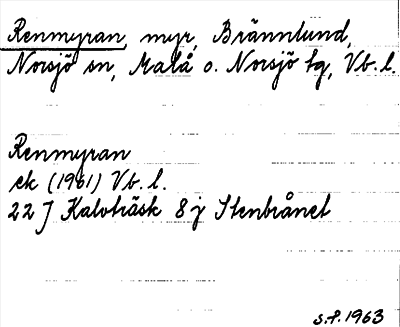 Renmyran, myr, Brännlund,
Norsjö sn, Malå o. Norsjö tg, Vb. l.
Renmyran
ek (1961) Vb. l.
22 J Kalvträsk 8 j Stenbrånet
S.P. 1963